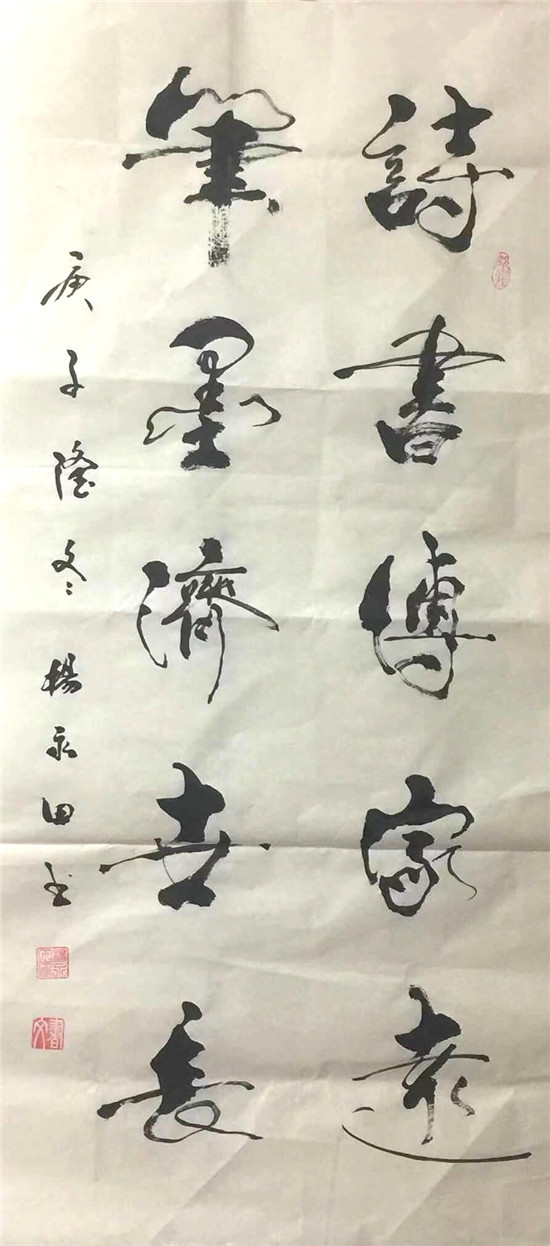 詩書傳家遠
筆墨濟世長
庚子隆冬楊永田书